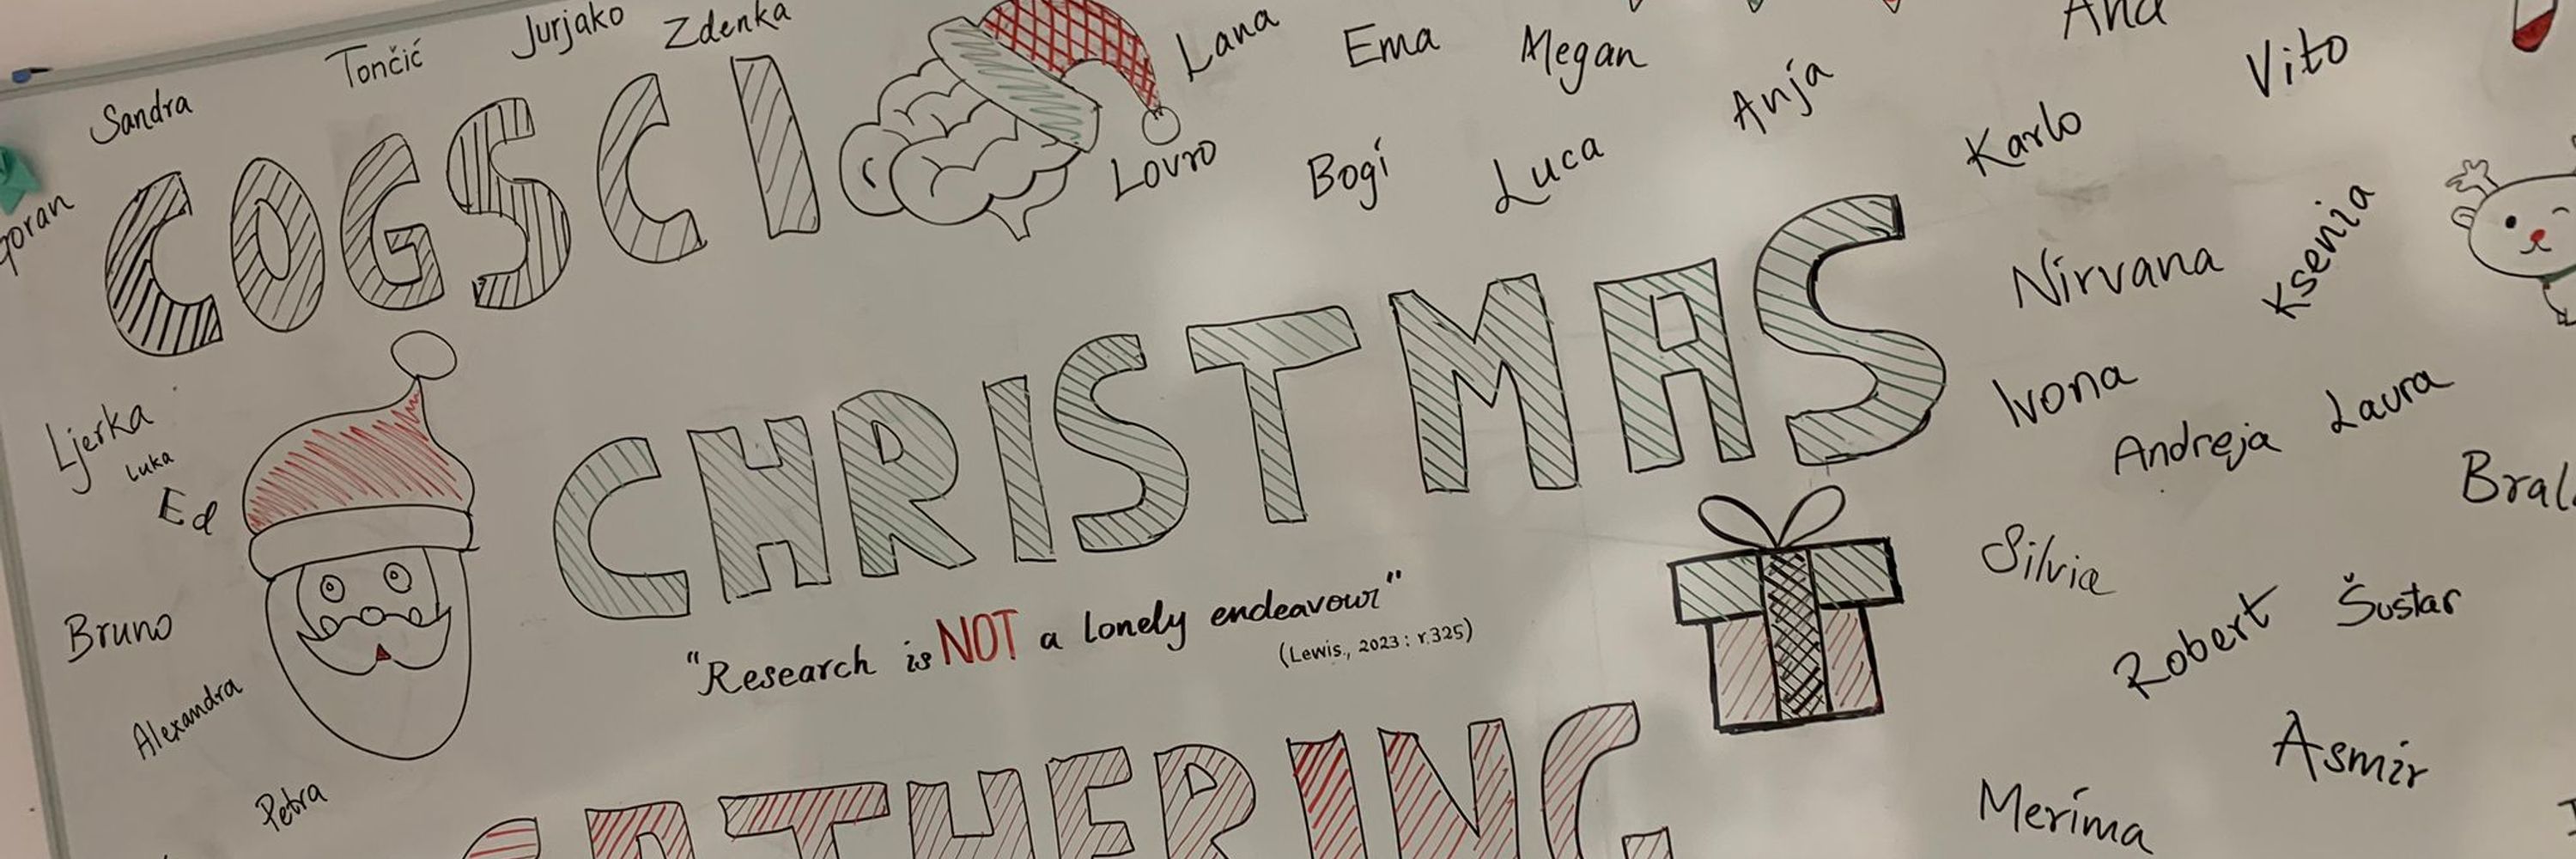 Sandra
Tončić
Jurjako
Zdenka
Lana
Ema
Megan
Anja
Ana
Vito
Lovro
Bogi
Luca
Karlo
goran
COGSCI
Nirvana
Ksenia
CHRISTMAS
Ljerka
Luka
Ed
Ivona
Andreja
Laura
Silvia
Bruno
"Research is NOT a lonely endeavour"
(Lewis., 2023: r.325)
Robert
Šustar
Alexandra
Petra
Asmir
Merima
GATHERING